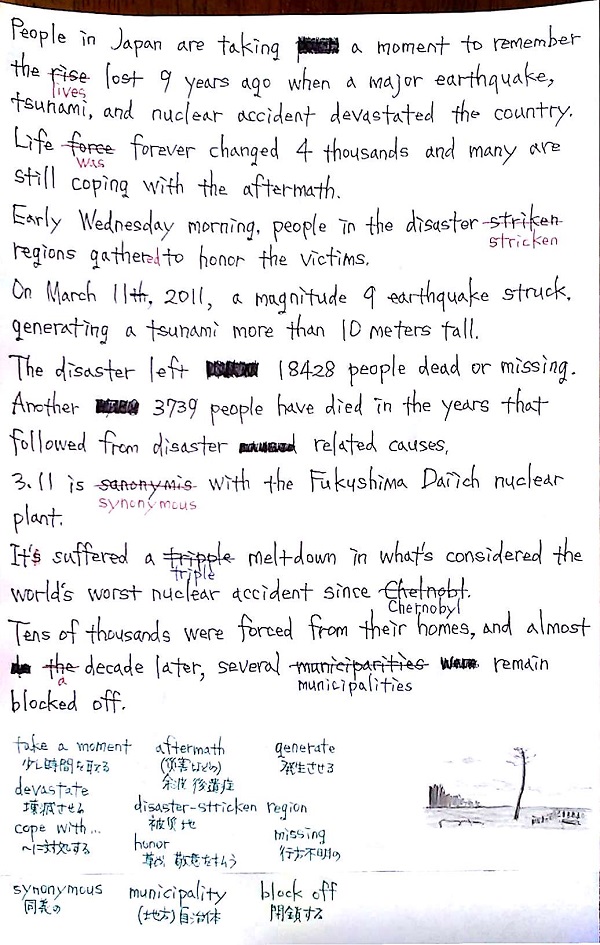 People in Japan are taking a moment to remember
the rise lost 9 years ago when a major earthquake,
lives
tsunami, and nuclear accident devastated the country.
Life force forever changed 4 thousands and many are
was
still coping with the aftermath.
Early Wednesday morning, people in the disaster striken
stricken
regions gathered to honor the victims.
On March 11th, 2011, a magnitude 9 earthquake struck,
generating a tsunami more than 10 meters tall.
The disaster left 18428 people dead or missing.
Another 3739 people have died in the years that
followed from disaster related causes.
3.11 is sanonymis with the Fukushima Daiich nuclear
synonymous
plant.
It's suffered a tripple meltdown in what's considered the
triple
world's worst nuclear accident since Chelnobl.
Chernobyl
Tens of thousands were forced from their homes, and almost
the decade later, several municiparities remain
a municipalities
blocked off.
take a moment aftermath generate
少し時間を取る (災害などの) 発生させる
devastate 余波 後遺症
壊滅させる disaster-stricken region
cope with... 被災地 missing
〜に対処する honor 行方不明の
敬意を払う
synonymous municipality block off
同義の (地方)自治体 閉鎖する